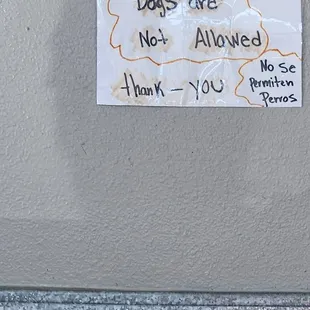 Dogs are
Not Allowed
thank - YOU
No se
permiten
Perros